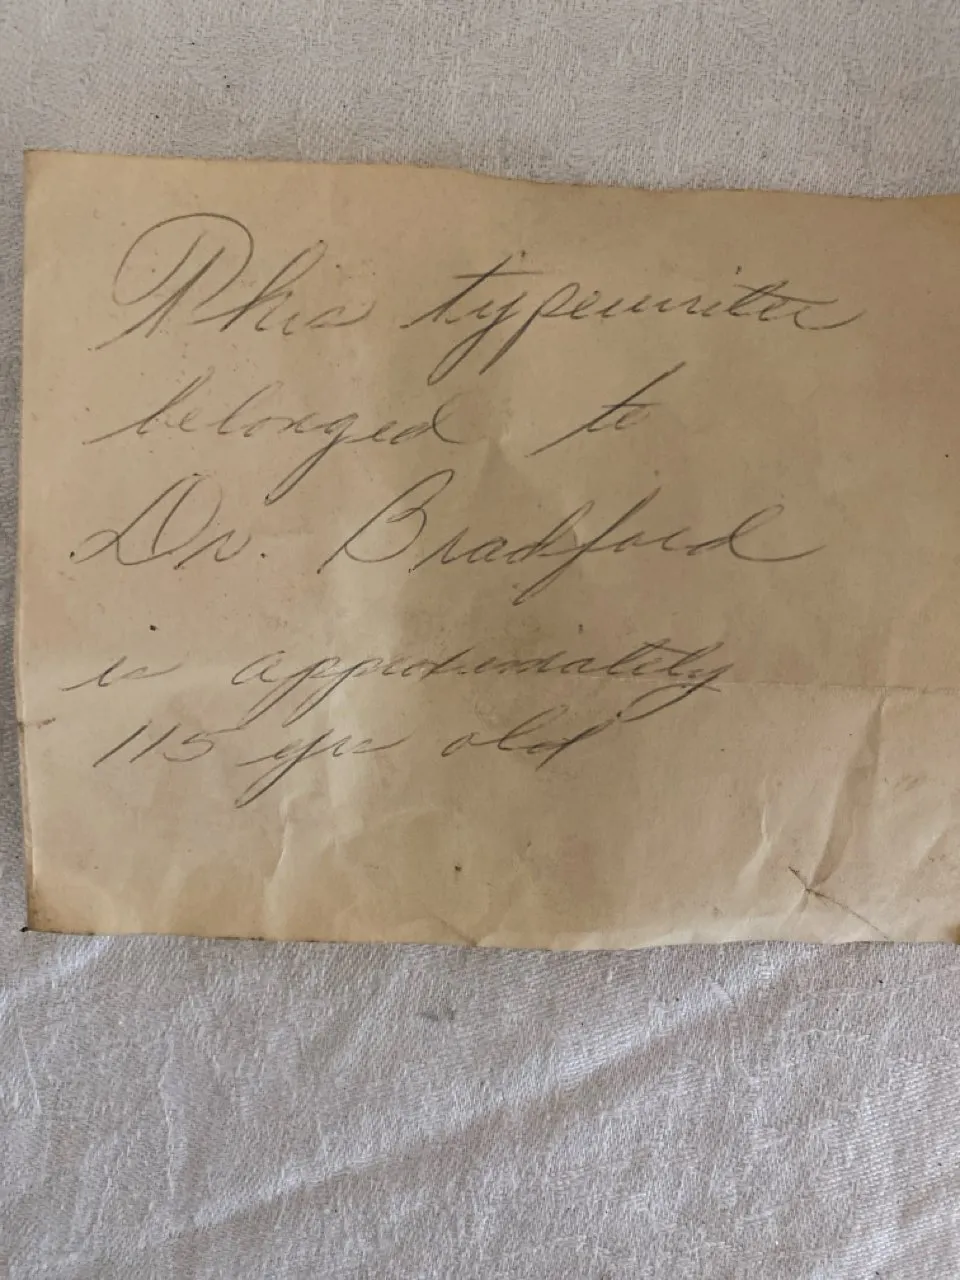 This typewriter
belonged to
Dr. Bradford
is approximately
115 yrs old